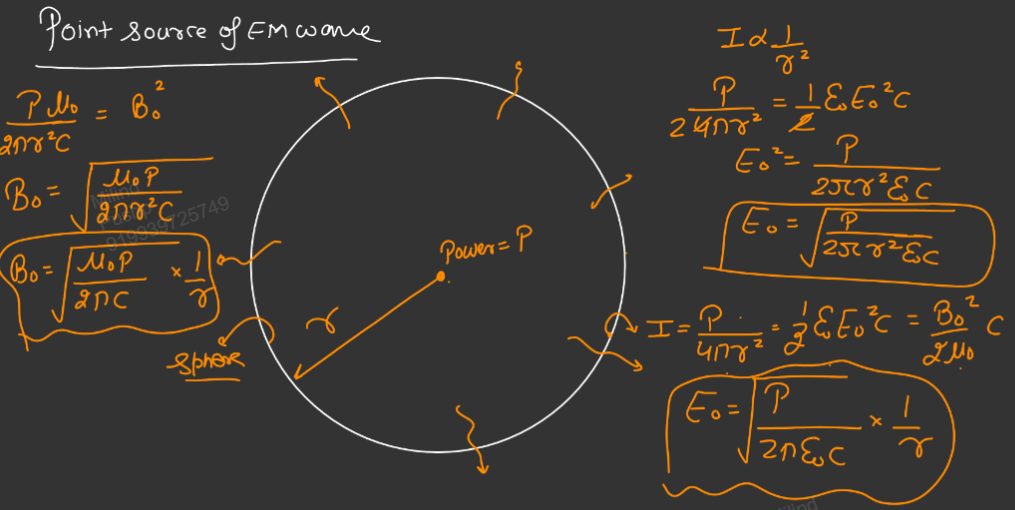 Point Source of EM wave
Pμ₀/2πr²C = B₀²
B₀ = √(μ₀P/2πr²C)
B₀ = √(μ₀P/2πC) × 1/r
919939725749
Sphere
r
Power = P
I ∝ 1/r²
P/2 4πr² = 1/2 ε₀E₀²C
E₀² = P/2πr²ε₀C
E₀ = √(P/2πr²ε₀C)
I = P/4πr² = 1/2 ε₀E₀²C = B₀²/2μ₀ C
E₀ = √(P/2πε₀C) × 1/r